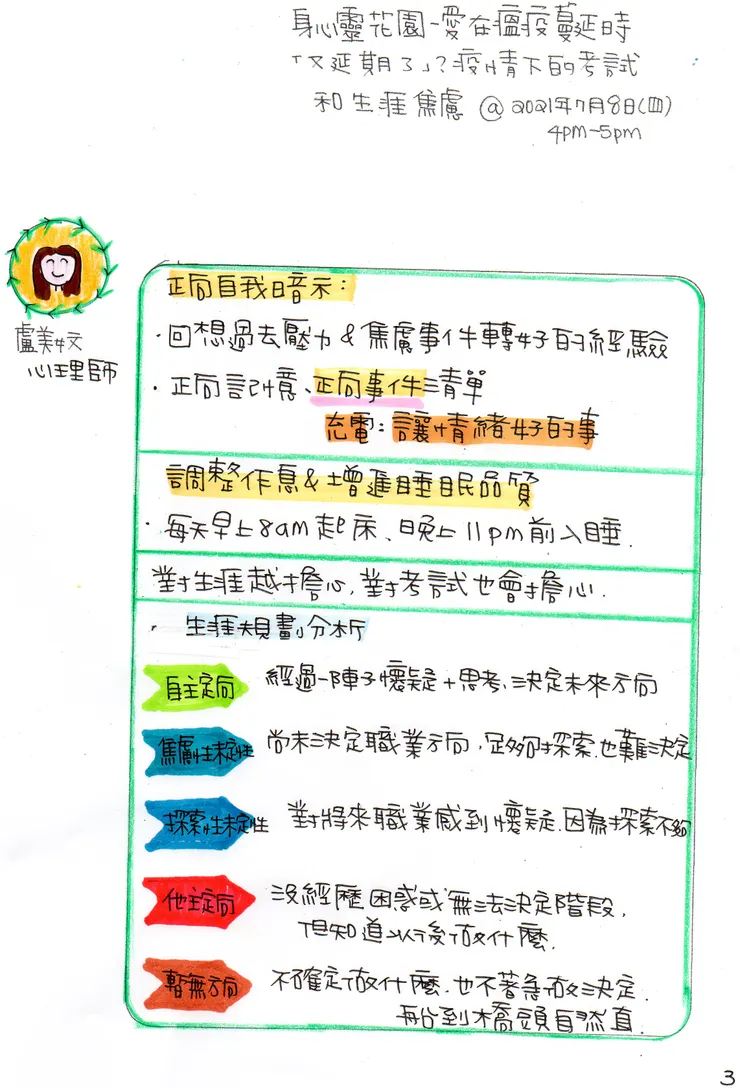 身心靈花園-愛在瘟疫蔓延時
「又延期了」?疫情下的考試
和生涯焦慮 @ 2021年7月8日(四)
4pm-5pm
盧美妏
心理師
正向自我暗示:
·回想過去壓力&焦慮事件轉好的經驗
·正向記憶、正向事件清單
充電:讓情緒好的事
調整作息&增進睡眠品質
·每天早上8am起床、晚上11pm前入睡.
對生涯越擔心,對考試也會擔心.
·生涯規劃分析
自主定向
經過一陣子懷疑+思考,決定未來方向
焦慮性未定性
尚未決定職業方向,足夠探索.也難決定
探索性未定性
對將來職業感到懷疑.因為探索不夠
他主定向
沒經歷困惑或無法決定階段,
但知道以後做什麼.
暫無方向
不確定做什麼.也不著急做決定.
船到橋頭自然直.
3